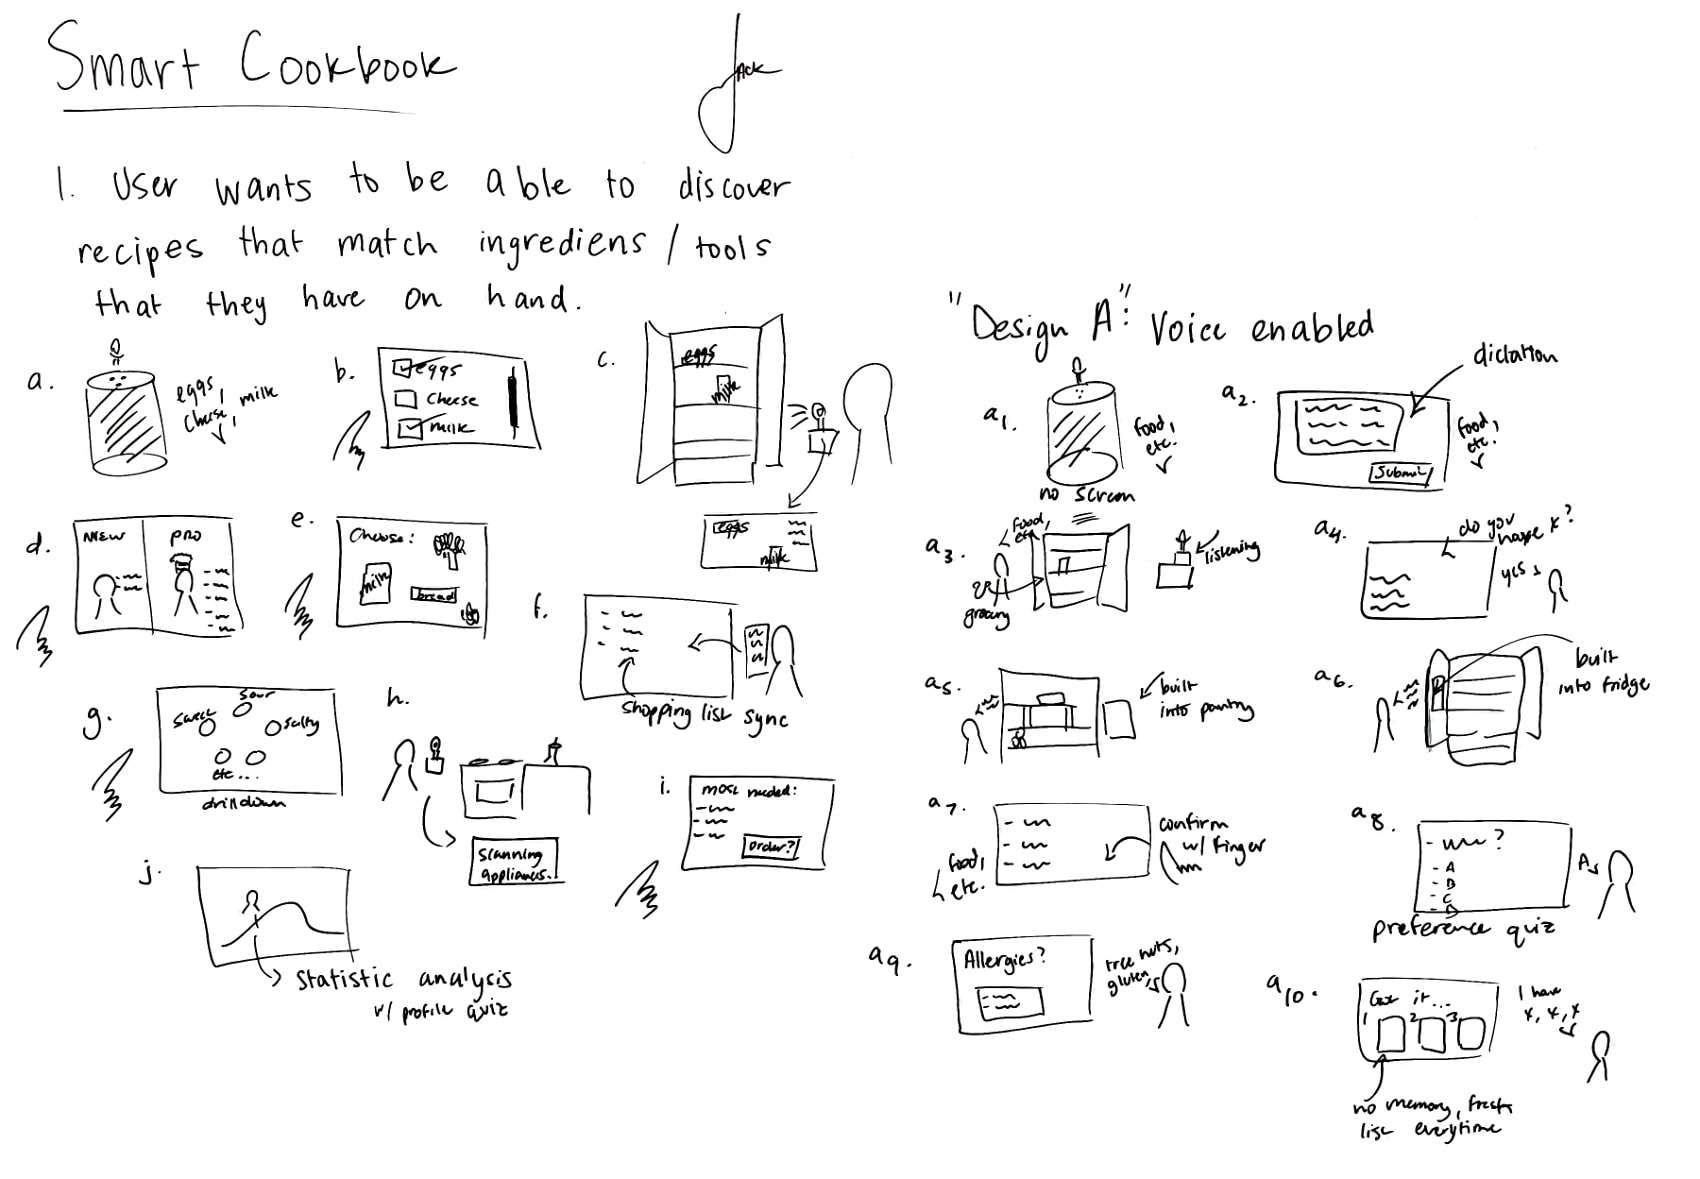 Smart Cookbook
Jack
1. User wants to be able to discover
recipes that match ingrediens / tools
that they have on hand.
a.
eggs,
cheese, milk
b.
eggs
Cheese
milk
c.
eggs
milk
eggs
milk
d.
NEW
PRO
e.
Choose:
milk
bread
f.
shopping list sync
g.
sweet
sour
salty
etc...
drilldown
h.
scanning
appliances.
i.
most needed:
order?
j.
statistic analysis
w/ profile quiz
"Design A": Voice enabled
a1.
food,
etc.
no screen
a2.
dictation
food,
etc.
Submit
a3.
food,
etc.
grocery
listening
a4.
do you
have x?
yes
a5.
built
into pantry
a6.
built
into fridge
a7.
food,
etc.
confirm
w/ finger
a8.
?
- A
- B
- C
- D
A
preference quiz
a9.
Allergies?
tree nuts,
gluten
a10.
Got it...
1 2 3
I have
x, x, x
no memory, fresh
list everytime